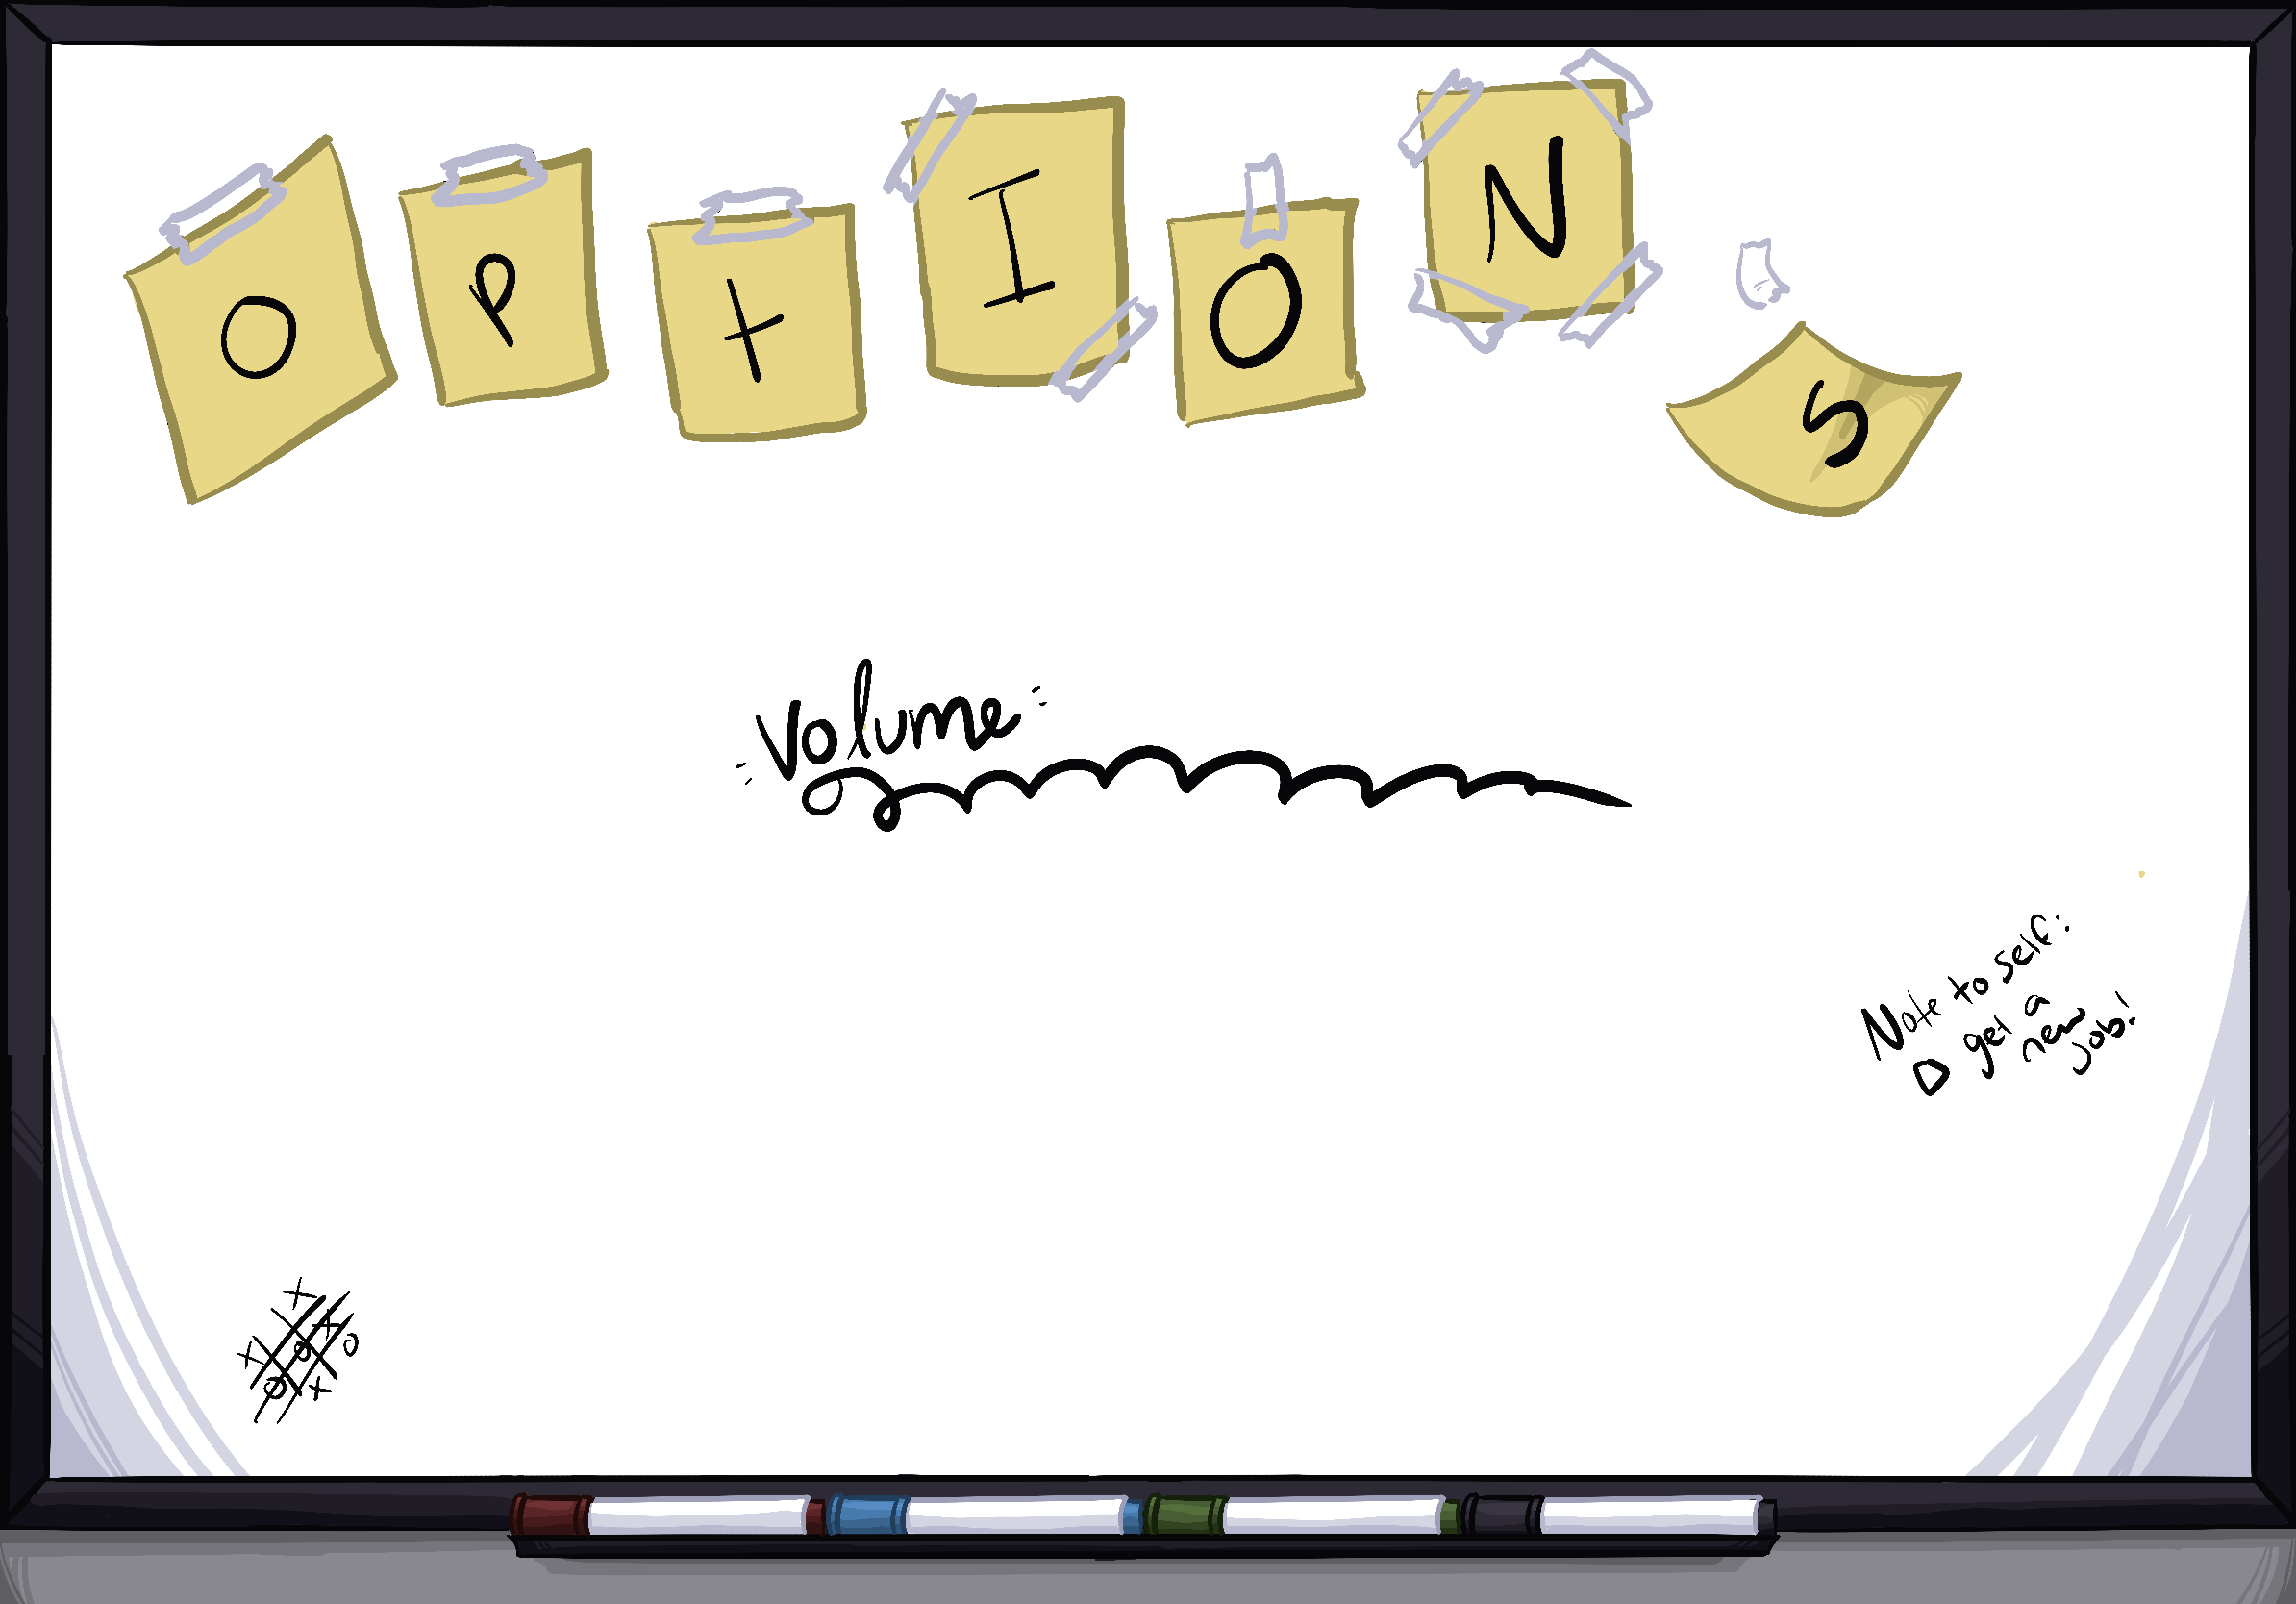 OPtIONS
Volume
Note to self:
get a new job!